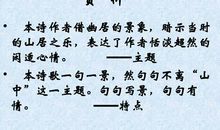 • 本诗作者借幽居的景象，暗示当时
的山居之乐，表达了作者恬淡超然的
闲适心情。 ——主题
• 本诗歌一句一景，然句句不离“山
中”这一主题。句句写景，句句有
情。 ——特点